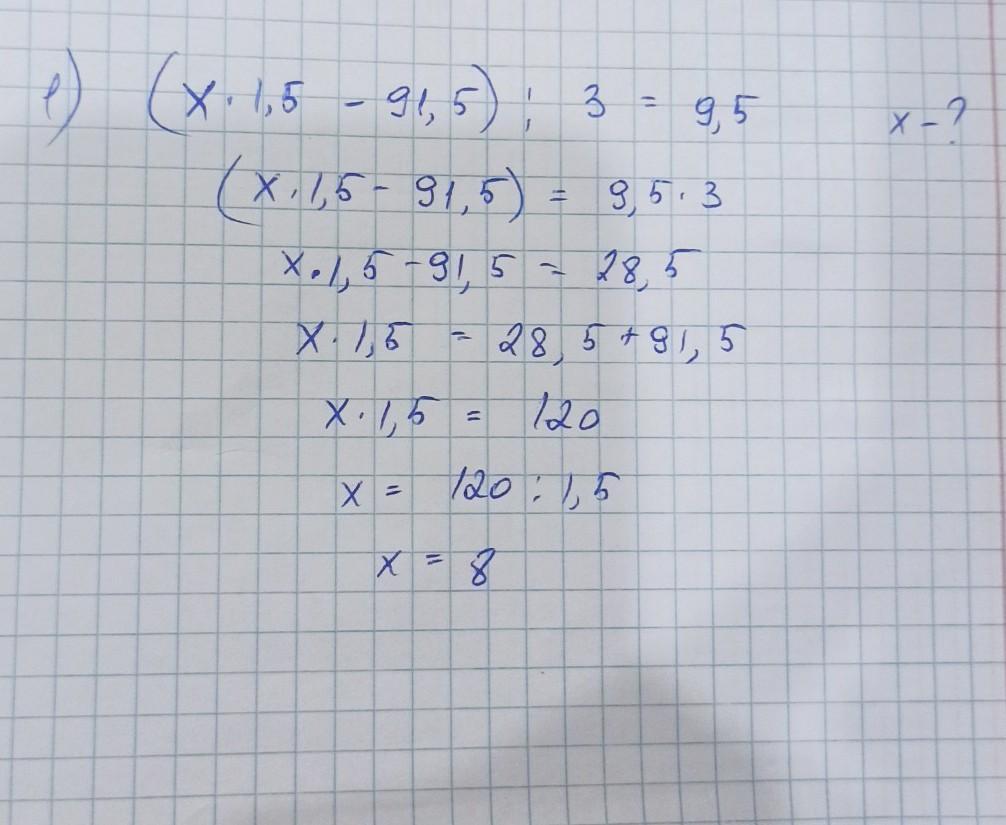 е) (x · 1,5 - 91,5) : 3 = 9,5 x - ?
(x · 1,5 - 91,5) = 9,5 · 3
x · 1,5 - 91,5 = 28,5
x · 1,5 = 28,5 + 91,5
x · 1,5 = 120
x = 120 : 1,5
x = 8